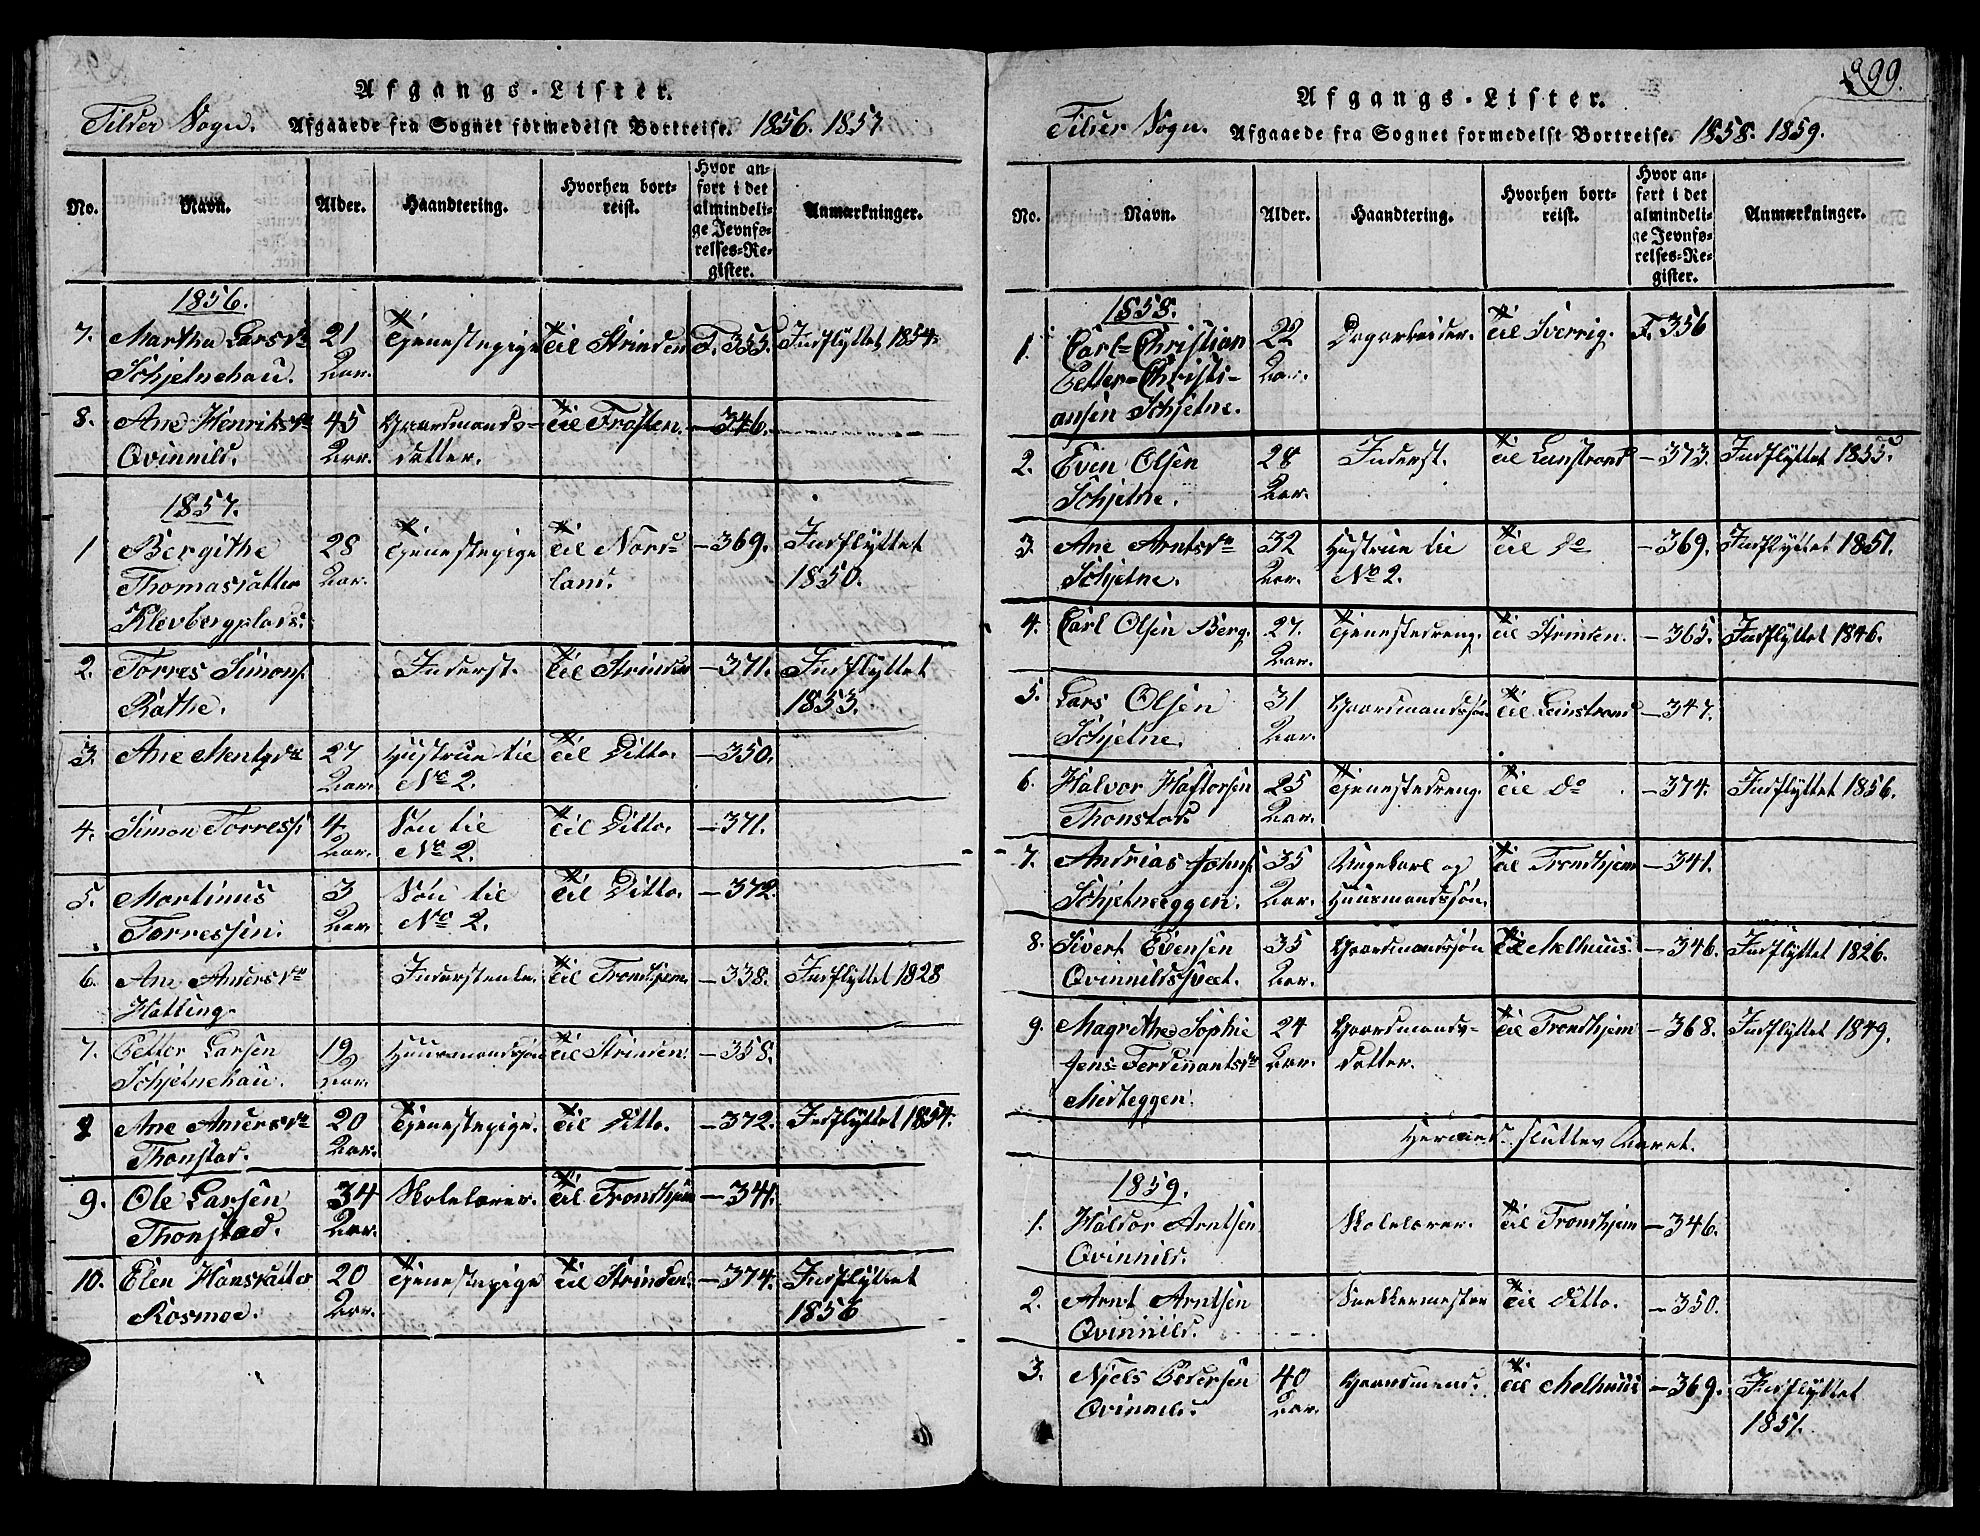 Afgangs-Lister.
Tilder Sogn. Afgaaede fra Sognet formedelst Bortreise. 1856. 1857
No. Navn. Alder. Haandtering. Hvorhen bortreist. Hvor anført i det almindelige Jevnførelses-Register. Anmærkninger.
1856.
7. Martha Larsdr 21 Tjenestepige til Strinden F. 355. Indflyttet 1854
Schjelnehau. Aar.
8. Ane Henriksdr 45 Gaardmands- til Frosten. —346.
Qvinnild. Aar. datter.
1857.
1 Bergithe 28 Tjenestepige til Nord- —369. Indflyttet
Thomasdatter Aar. land. 1850.
Klevbergplads.
2. Torres Simons. Inderst. til Strinden —371. Indflyttet
Røthe. 1853.
3. Ane Mentzdr 27 Hustrue til til Ditto. —350.
Aar. No 2.
4. Simon Torress. 4 Søn til til Ditto. —371.
Aar. No 2.
5. Martinus 3 Søn til til Ditto. —372.
Torressen. Aar No 2.
6. Ane Andersdr Inderstenke. til Trondhjem —338. Indflyttet 1828
Hatting.
7. Petter Larsen 19 Huusmandssøn til Strinden. —358.
Schjelnehau. Aar.
8 Ane Andersdr 20 Tjenestepige. til Ditto. —372. Indflyttet 1854.
Thonstad. Aar.
9. Ole Larsen 34 Skolelærer. til Trondhjem —341.
Thonstad. Aar.
10. Elen Hansdatter 20 Tjenestepige til Strinden. —374. Indflyttet
Rosmoe. Aar. 1856
299.
Afgangs-Lister.
Tilder Sogn. Afgaaede fra Sognet formedelst Bortreise. 1858. 1859.
No. Navn. Alder. Haandtering. Hvorhen bortreist. Hvor anført i det almindelige Jevnførelses-Register. Anmærkninger.
1858.
1. Carl-Christian 22 Dagarbeider. til Sverrig. F. 356
Petter-Christi- Aar.
ansen Schjelne.
2. Even Olsen 28 Inderst. til Leinstrand —373. Indflyttet 1855.
Schjelne. Aar.
3. Ane Arntsdr 32 Hustrue til til Do —369. Indflyttet 1851.
Schjelne. Aar. No 2.
4. Carl Olsen Berg. 27. Tjenestedreng. til Strinden. —365. Indflyttet 1846.
Aar.
5. Lars Olsen 31 Gaardmandssøn til Leinstrand —347.
Schjelne. Aar.
6. Halvor Haftorsen 25 Tjenestedreng. til Do —374. Indflyttet 1856.
Thonstad Aar.
7. Andrias Johns. 35 Ungekarl og til Trondhjem —341.
Schjelneeggen. Aar. Huusmandssøn.
8. Sivert Evensen 35 Gaardmandssøn til Melhuus —346. Indflyttet 1826.
Qvinnildssvæet. Aar.
9. Magrethe Sophie 24 Gaardmands- til Trondhjem —368. Indflyttet 1849.
Jens-Ferdinantsdr Aar. datter.
Misteggen.
Hermed sluttes Aaret.
1859.
1. Haldor Arntsen Skolelærer. til Trondhjem —346.
Qvinnild.
2. Arnt Arntsen Snekkermester til Ditto. —350.
Qvinnild.
3. Njels Pedersen 40 Gaardmand. til Melhuus —369. Indflyttet
Qvinnild. Aar. 1851.